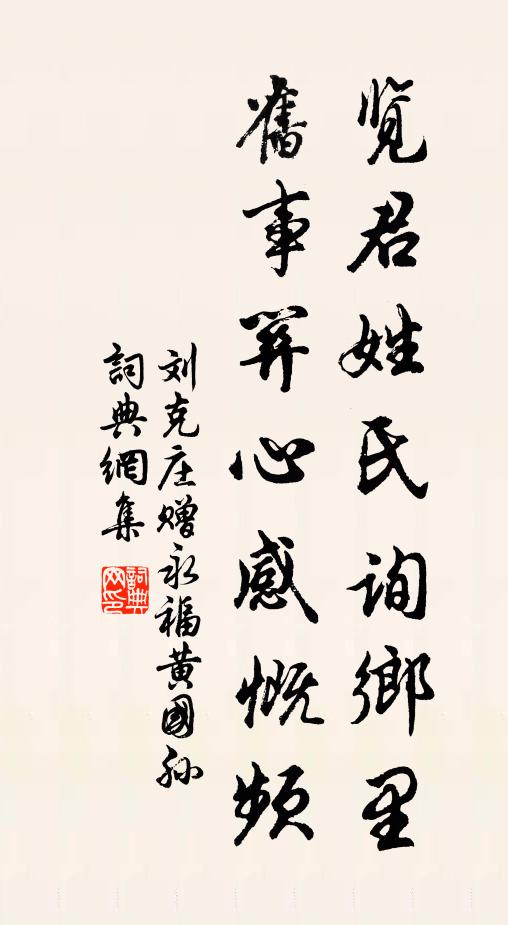 览君姓氏询鄉里
舊事關心感慨頻
刘克庄赠永福黄國孙
詞典網集
詞典
网印